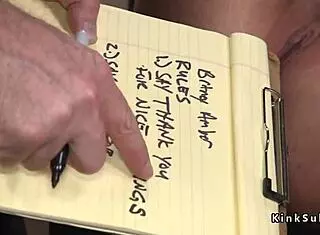 Britney Amber
RULES
1) SAY THANK YOU
FOR NICE INGS
2) SA
KinkSu